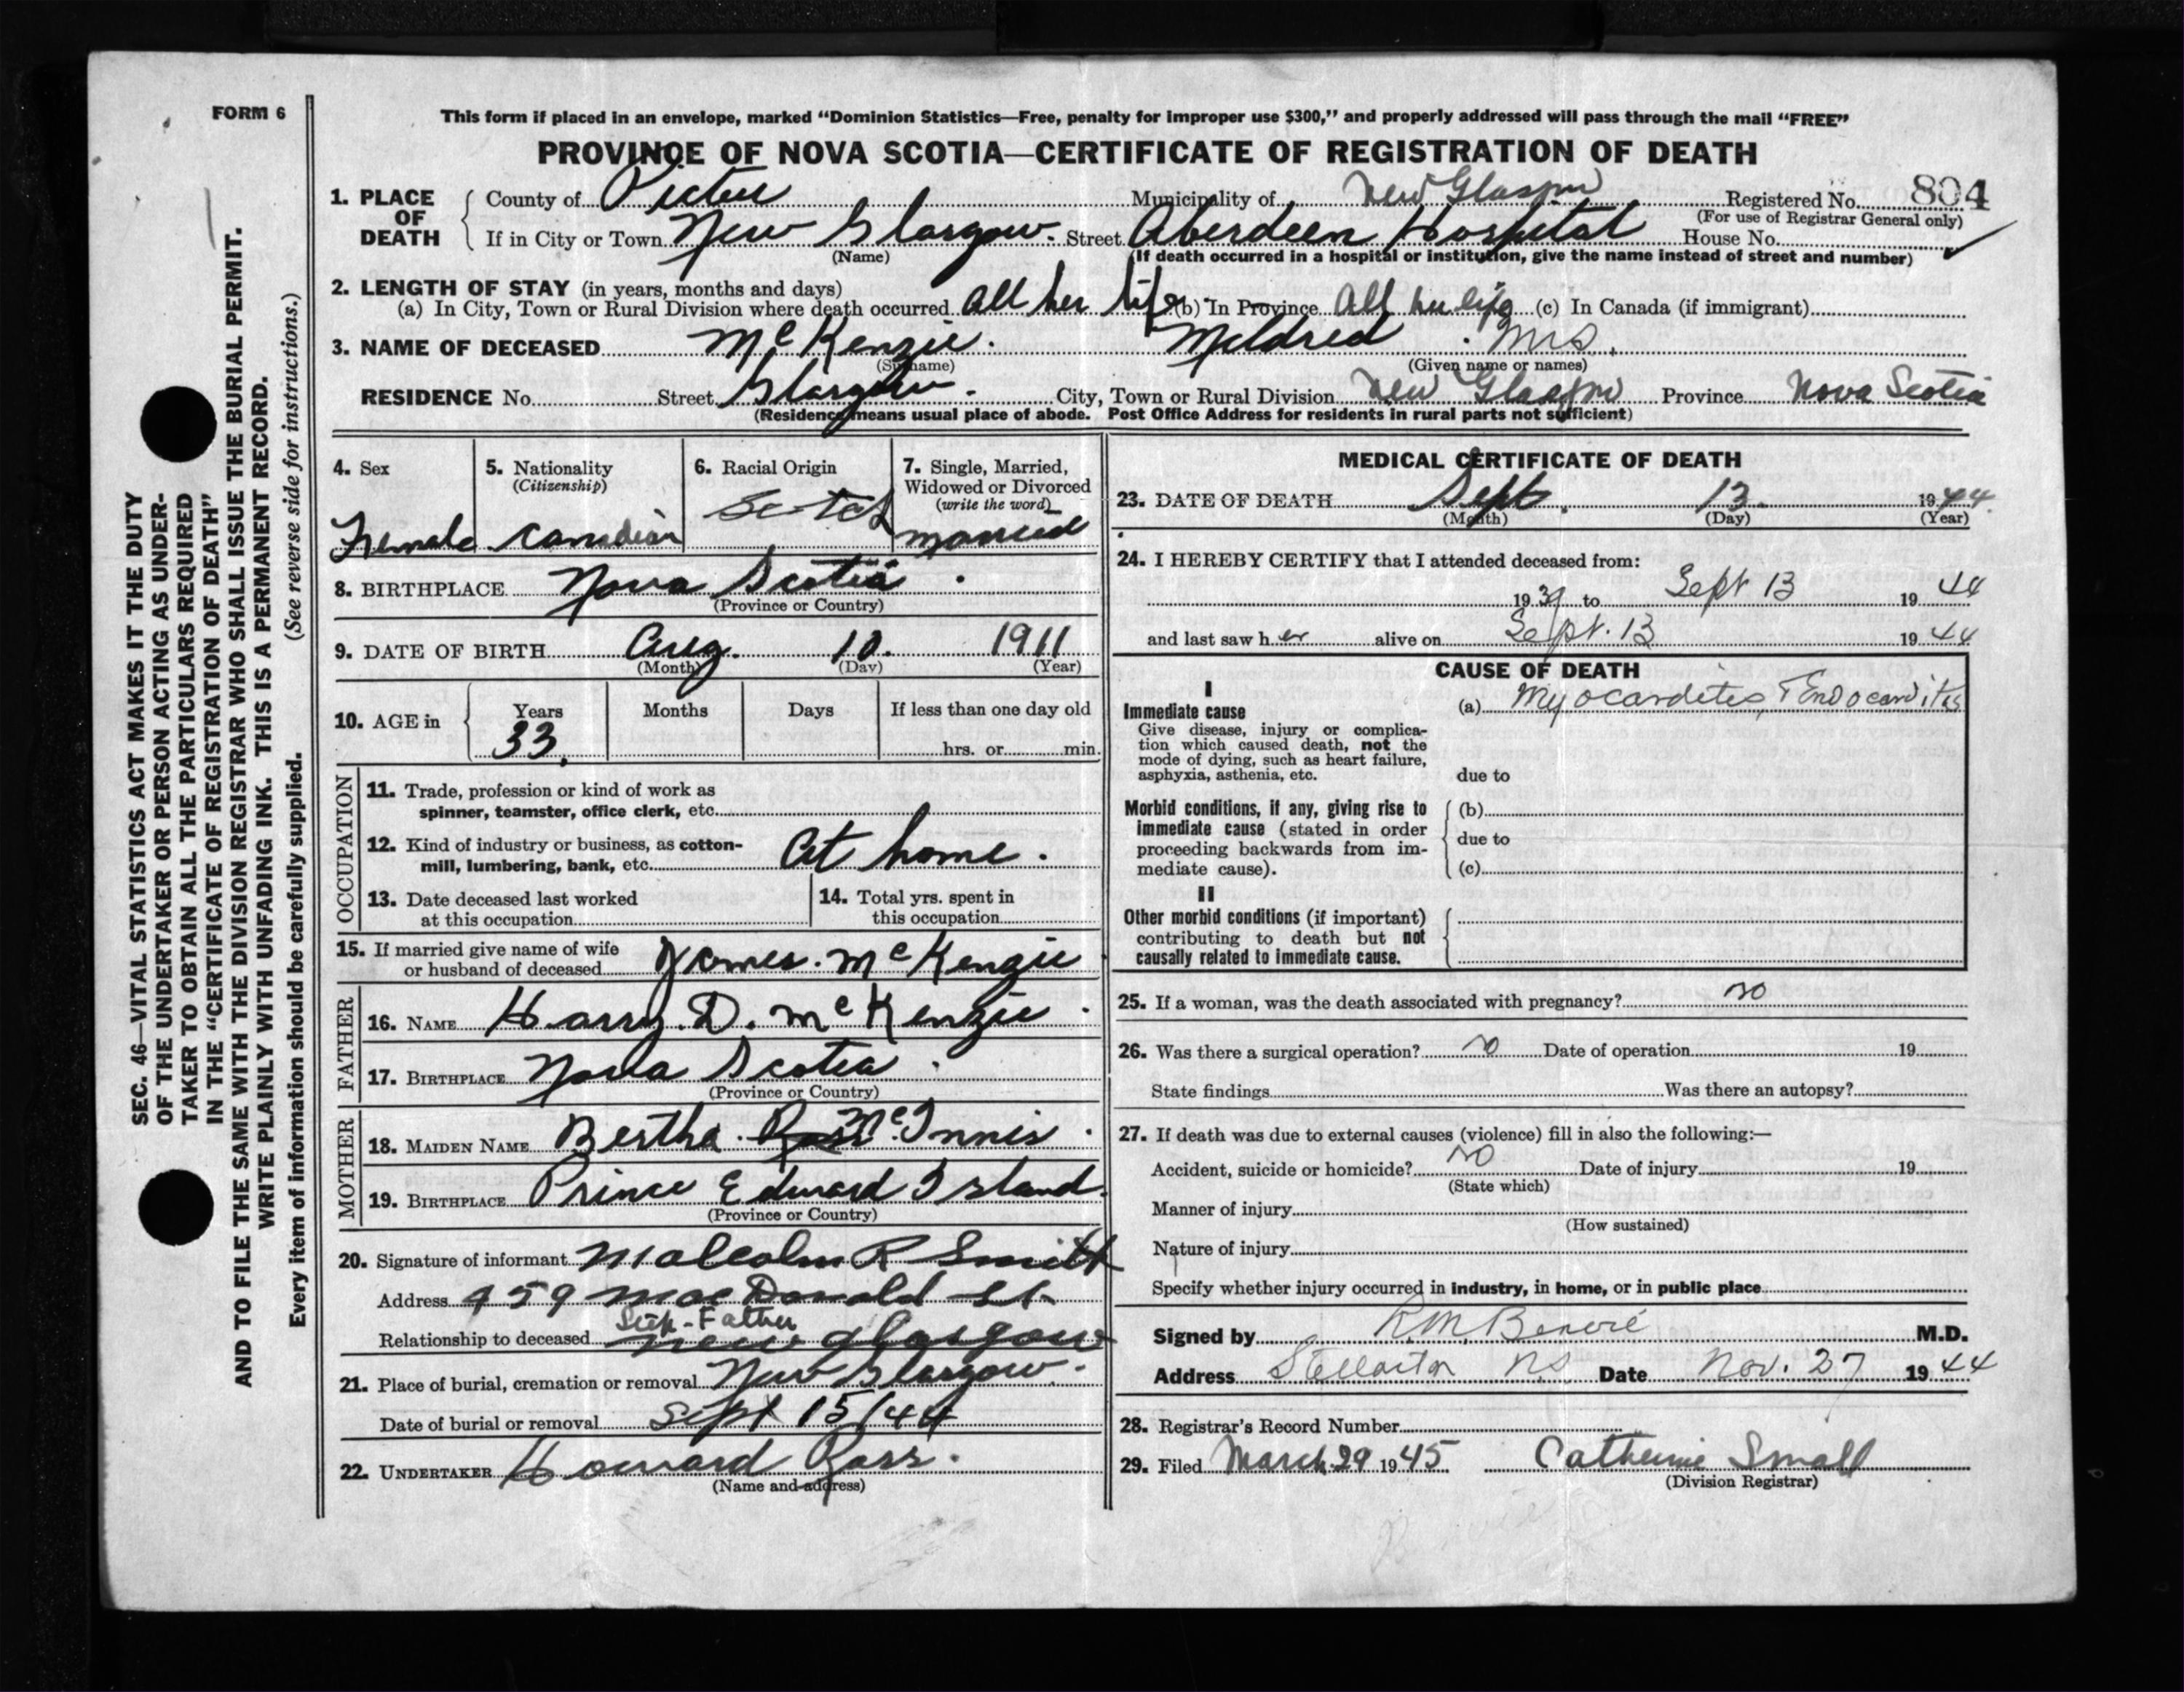 FORM 6
This form if placed in an envelope, marked "Dominion Statistics—Free, penalty for improper use $300," and properly addressed will pass through the mail "FREE"
PROVINCE OF NOVA SCOTIA—CERTIFICATE OF REGISTRATION OF DEATH
1. PLACE OF DEATH
County of Pictou Municipality of New Glasgow Registered No. 804
(For use of Registrar General only)
If in City or Town New Glasgow. Street Aberdeen Hospital House No.
(Name) (If death occurred in a hospital or institution, give the name instead of street and number)
2. LENGTH OF STAY (in years, months and days)
(a) In City, Town or Rural Division where death occurred all her life (b) In Province All her life (c) In Canada (if immigrant)
3. NAME OF DECEASED McKenzie. Mildred. Mrs.
(Surname) (Given name or names)
RESIDENCE No. Street Glasgow. City, Town or Rural Division New Glasgow Province Nova Scotia
(Residence means usual place of abode. Post Office Address for residents in rural parts not sufficient)
4. Sex
Female
5. Nationality
(Citizenship)
Canadian
6. Racial Origin
Scotch
7. Single, Married,
Widowed or Divorced
(write the word)
married
8. BIRTHPLACE Nova Scotia.
(Province or Country)
9. DATE OF BIRTH Aug. 10. 1911
(Month) (Day) (Year)
10. AGE in
Years Months Days If less than one day old
33. hrs. or min.
OCCUPATION
11. Trade, profession or kind of work as
spinner, teamster, office clerk, etc.
12. Kind of industry or business, as cotton-
mill, lumbering, bank, etc. At home.
13. Date deceased last worked
at this occupation
14. Total yrs. spent in
this occupation
15. If married give name of wife
or husband of deceased James. McKenzie
FATHER
16. NAME Harry. D. McKenzie.
17. BIRTHPLACE Nova Scotia.
(Province or Country)
MOTHER
18. MAIDEN NAME Bertha. Ross McInnis.
19. BIRTHPLACE Prince Edward Island.
(Province or Country)
20. Signature of informant Malcolm R Smith
Address 459 MacDonald St.
Step-Father
Relationship to deceased New Glasgow
21. Place of burial, cremation or removal New Glasgow.
Date of burial or removal Sept 15/44
22. UNDERTAKER Howard Ross.
(Name and address)
MEDICAL CERTIFICATE OF DEATH
23. DATE OF DEATH Sept. 13. 1944
(Month) (Day) (Year)
24. I HEREBY CERTIFY that I attended deceased from:
1939 to Sept 13 1944
and last saw her alive on Sept. 13 1944
CAUSE OF DEATH
I
Immediate cause
Give disease, injury or complica-
tion which caused death, not the
mode of dying, such as heart failure,
asphyxia, asthenia, etc.
(a) Myocarditis, & Endocarditis
due to
Morbid conditions, if any, giving rise to
immediate cause (stated in order
proceeding backwards from im-
mediate cause).
(b)
due to
(c)
II
Other morbid conditions (if important)
contributing to death but not
causally related to immediate cause.
25. If a woman, was the death associated with pregnancy? no
26. Was there a surgical operation? no Date of operation 19
State findings Was there an autopsy?
27. If death was due to external causes (violence) fill in also the following:—
Accident, suicide or homicide? no Date of injury 19
(State which)
Manner of injury
(How sustained)
Nature of injury
Specify whether injury occurred in industry, in home, or in public place
Signed by R.M. Benvie M.D.
Address Stellarton NS Date Nov. 27 1944
28. Registrar's Record Number
29. Filed March 29 1945 Catherine Small
(Division Registrar)
SEC. 46—VITAL STATISTICS ACT MAKES IT THE DUTY
OF THE UNDERTAKER OR PERSON ACTING AS UNDER-
TAKER TO OBTAIN ALL THE PARTICULARS REQUIRED
IN THE "CERTIFICATE OF REGISTRATION OF DEATH"
AND TO FILE THE SAME WITH THE DIVISION REGISTRAR WHO SHALL ISSUE THE BURIAL PERMIT.
WRITE PLAINLY WITH UNFADING INK. THIS IS A PERMANENT RECORD.
Every item of information should be carefully supplied. (See reverse side for instructions.)